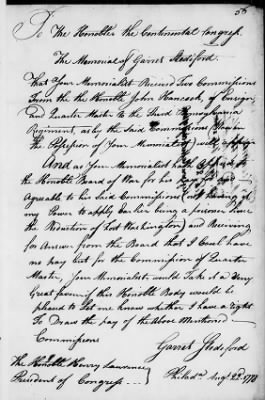 56
To The Honoble the Continental Congress,
The Memorial of Garret Stediford.
That Your Memorialist Received Two Commissions
from the the Honoble John Hancock, of Ensign
and Quarter Master to the Third Pennsylvania
Regiment, as by the said Commissions (Now in
the Possession of Your Memorialist) will
And as Your Memorialist hath
the Honoble Board of War for his
Agreable to his said Commissions (not having it in
my Power to apply Earlier being a prisoner Since
the Reduction of Fort Washington) and Receiving
for Answer from the Board that I Coul have
no pay but for the Commission of Quarter
Master, Your Memorialist would Take it a Very
Great favour if this Honoble Body would be
pleased to Let me know whether I have a right
To Draw the pay of the Above Mentioned
Commissions
Garret Stediford
The Honoble Henry Lawrence
President of Congress
Philada Augt 22d 1778